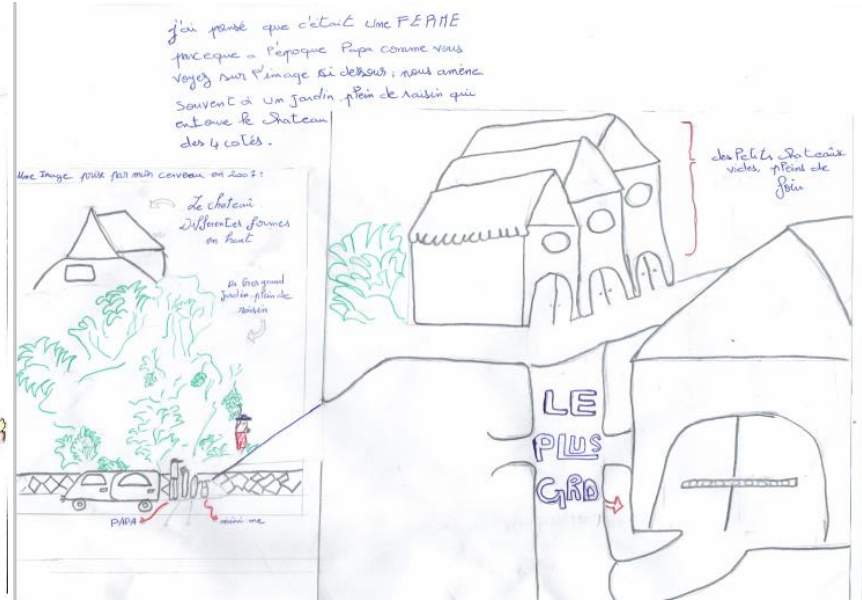 j'ai pensé que c'était une FERME
parceque a l'époque Papa comme vous
voyez sur l'image si dessous, nous amène
souvent à un jardin plein de raisin qui
entoure le chateau
des 4 cotés.
Une Image prise par mon cerveau en 2007:
Le chateau
Différentes formes
en haut
un très grand
jardin plein de
raisin
des Petits chateaux
vides, pleins de
foin
LE
PLUS
GRD
PAPA
mini me